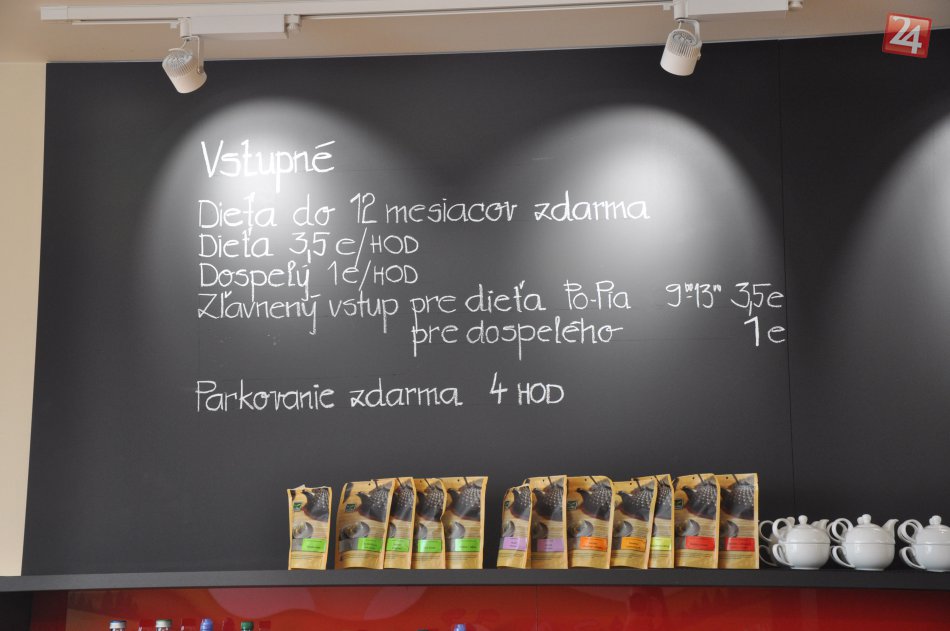 24
Vstupné
Dieťa do 12 mesiacov zdarma
Dieťa 3,5 e/HOD
Dospelý 1e/HOD
Zľavnený vstup pre dieťa Po-Pia 9⁰⁰-13⁰⁰ 3,5e
pre dospelého 1e
Parkovanie zdarma 4 HOD